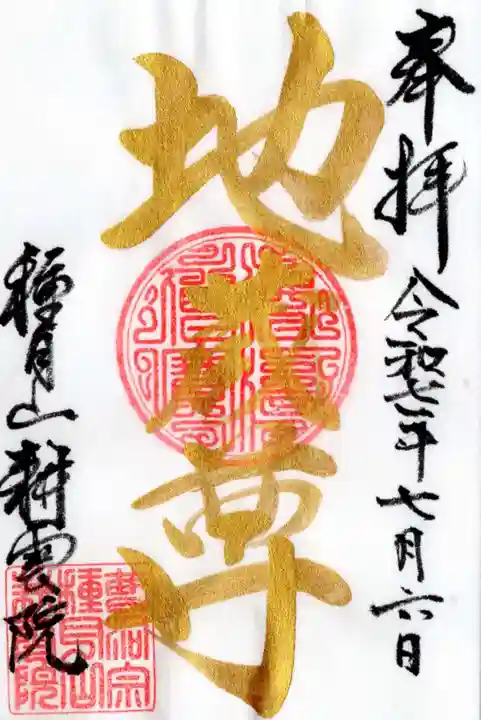 奉拝 令和七年七月六日
地蔵尊
種月山耕雲院
曹洞宗
種月山
耕雲院